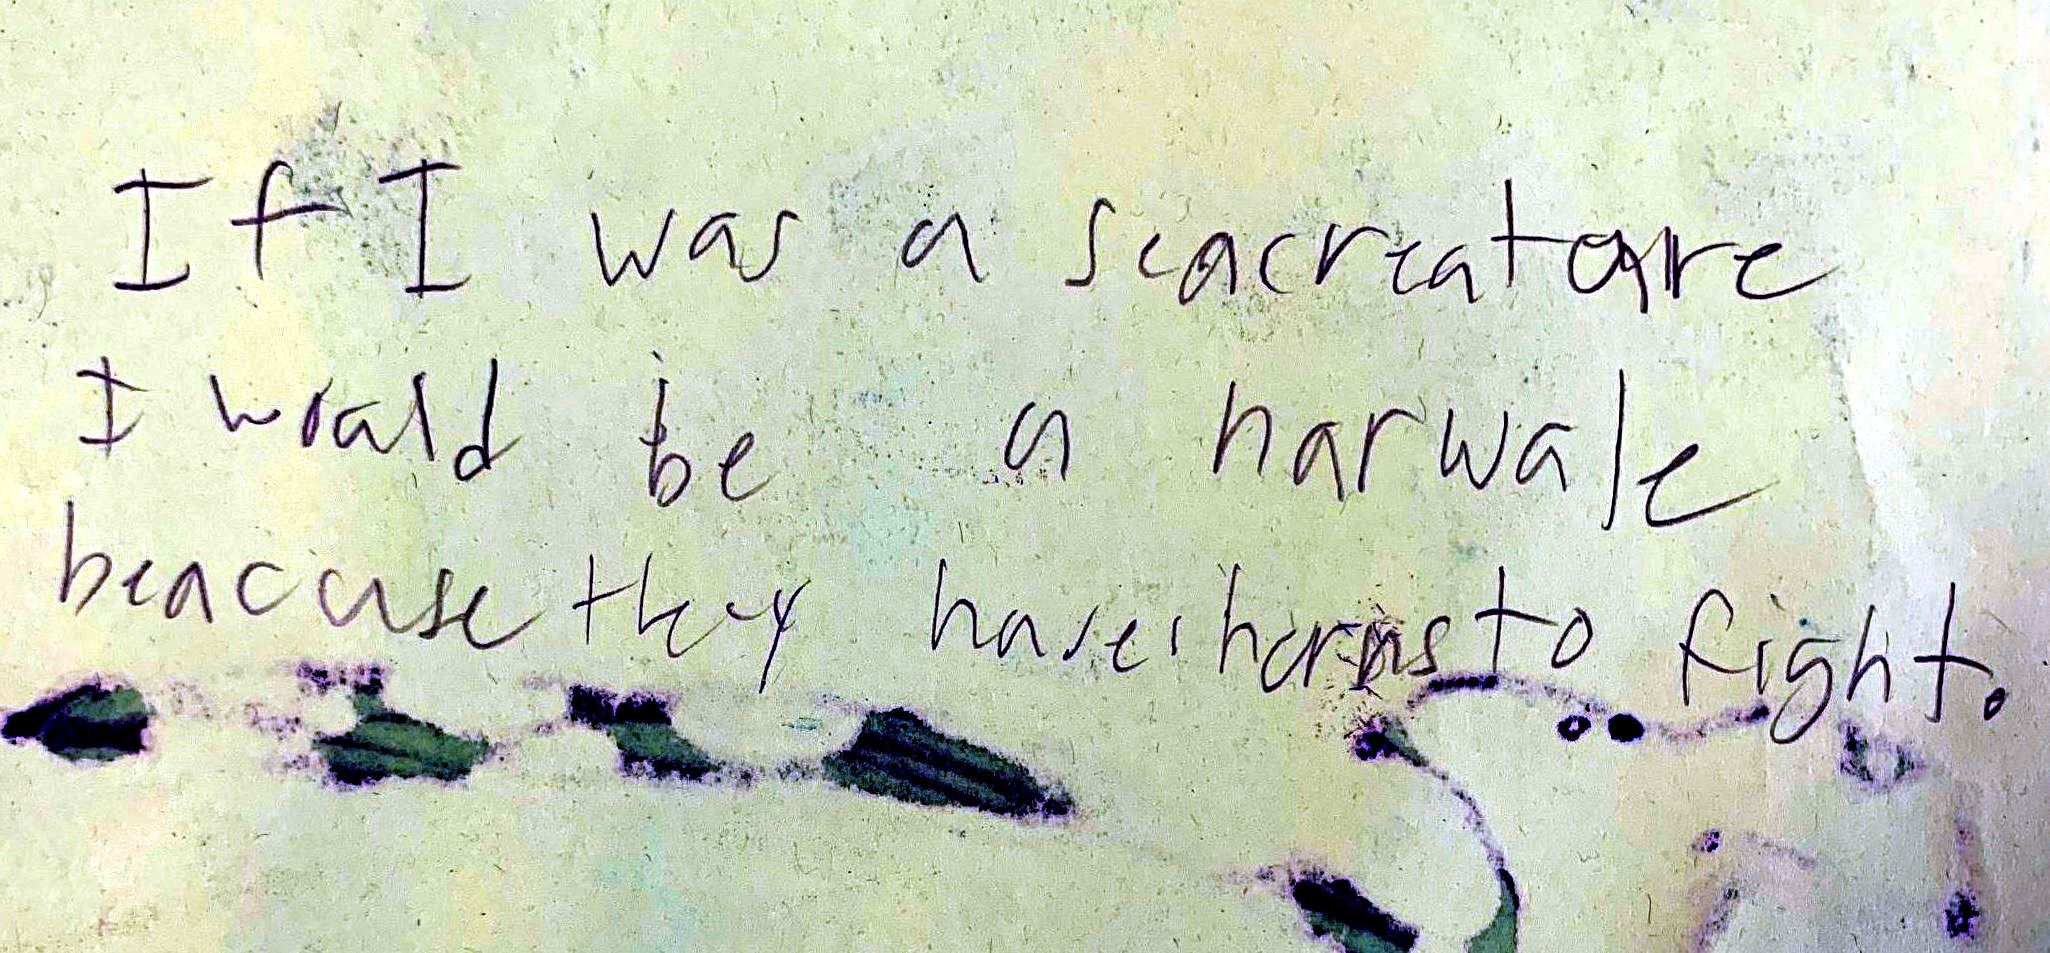 If I was a seacreature
I woald be a narwale
beacause they have horns to fight.